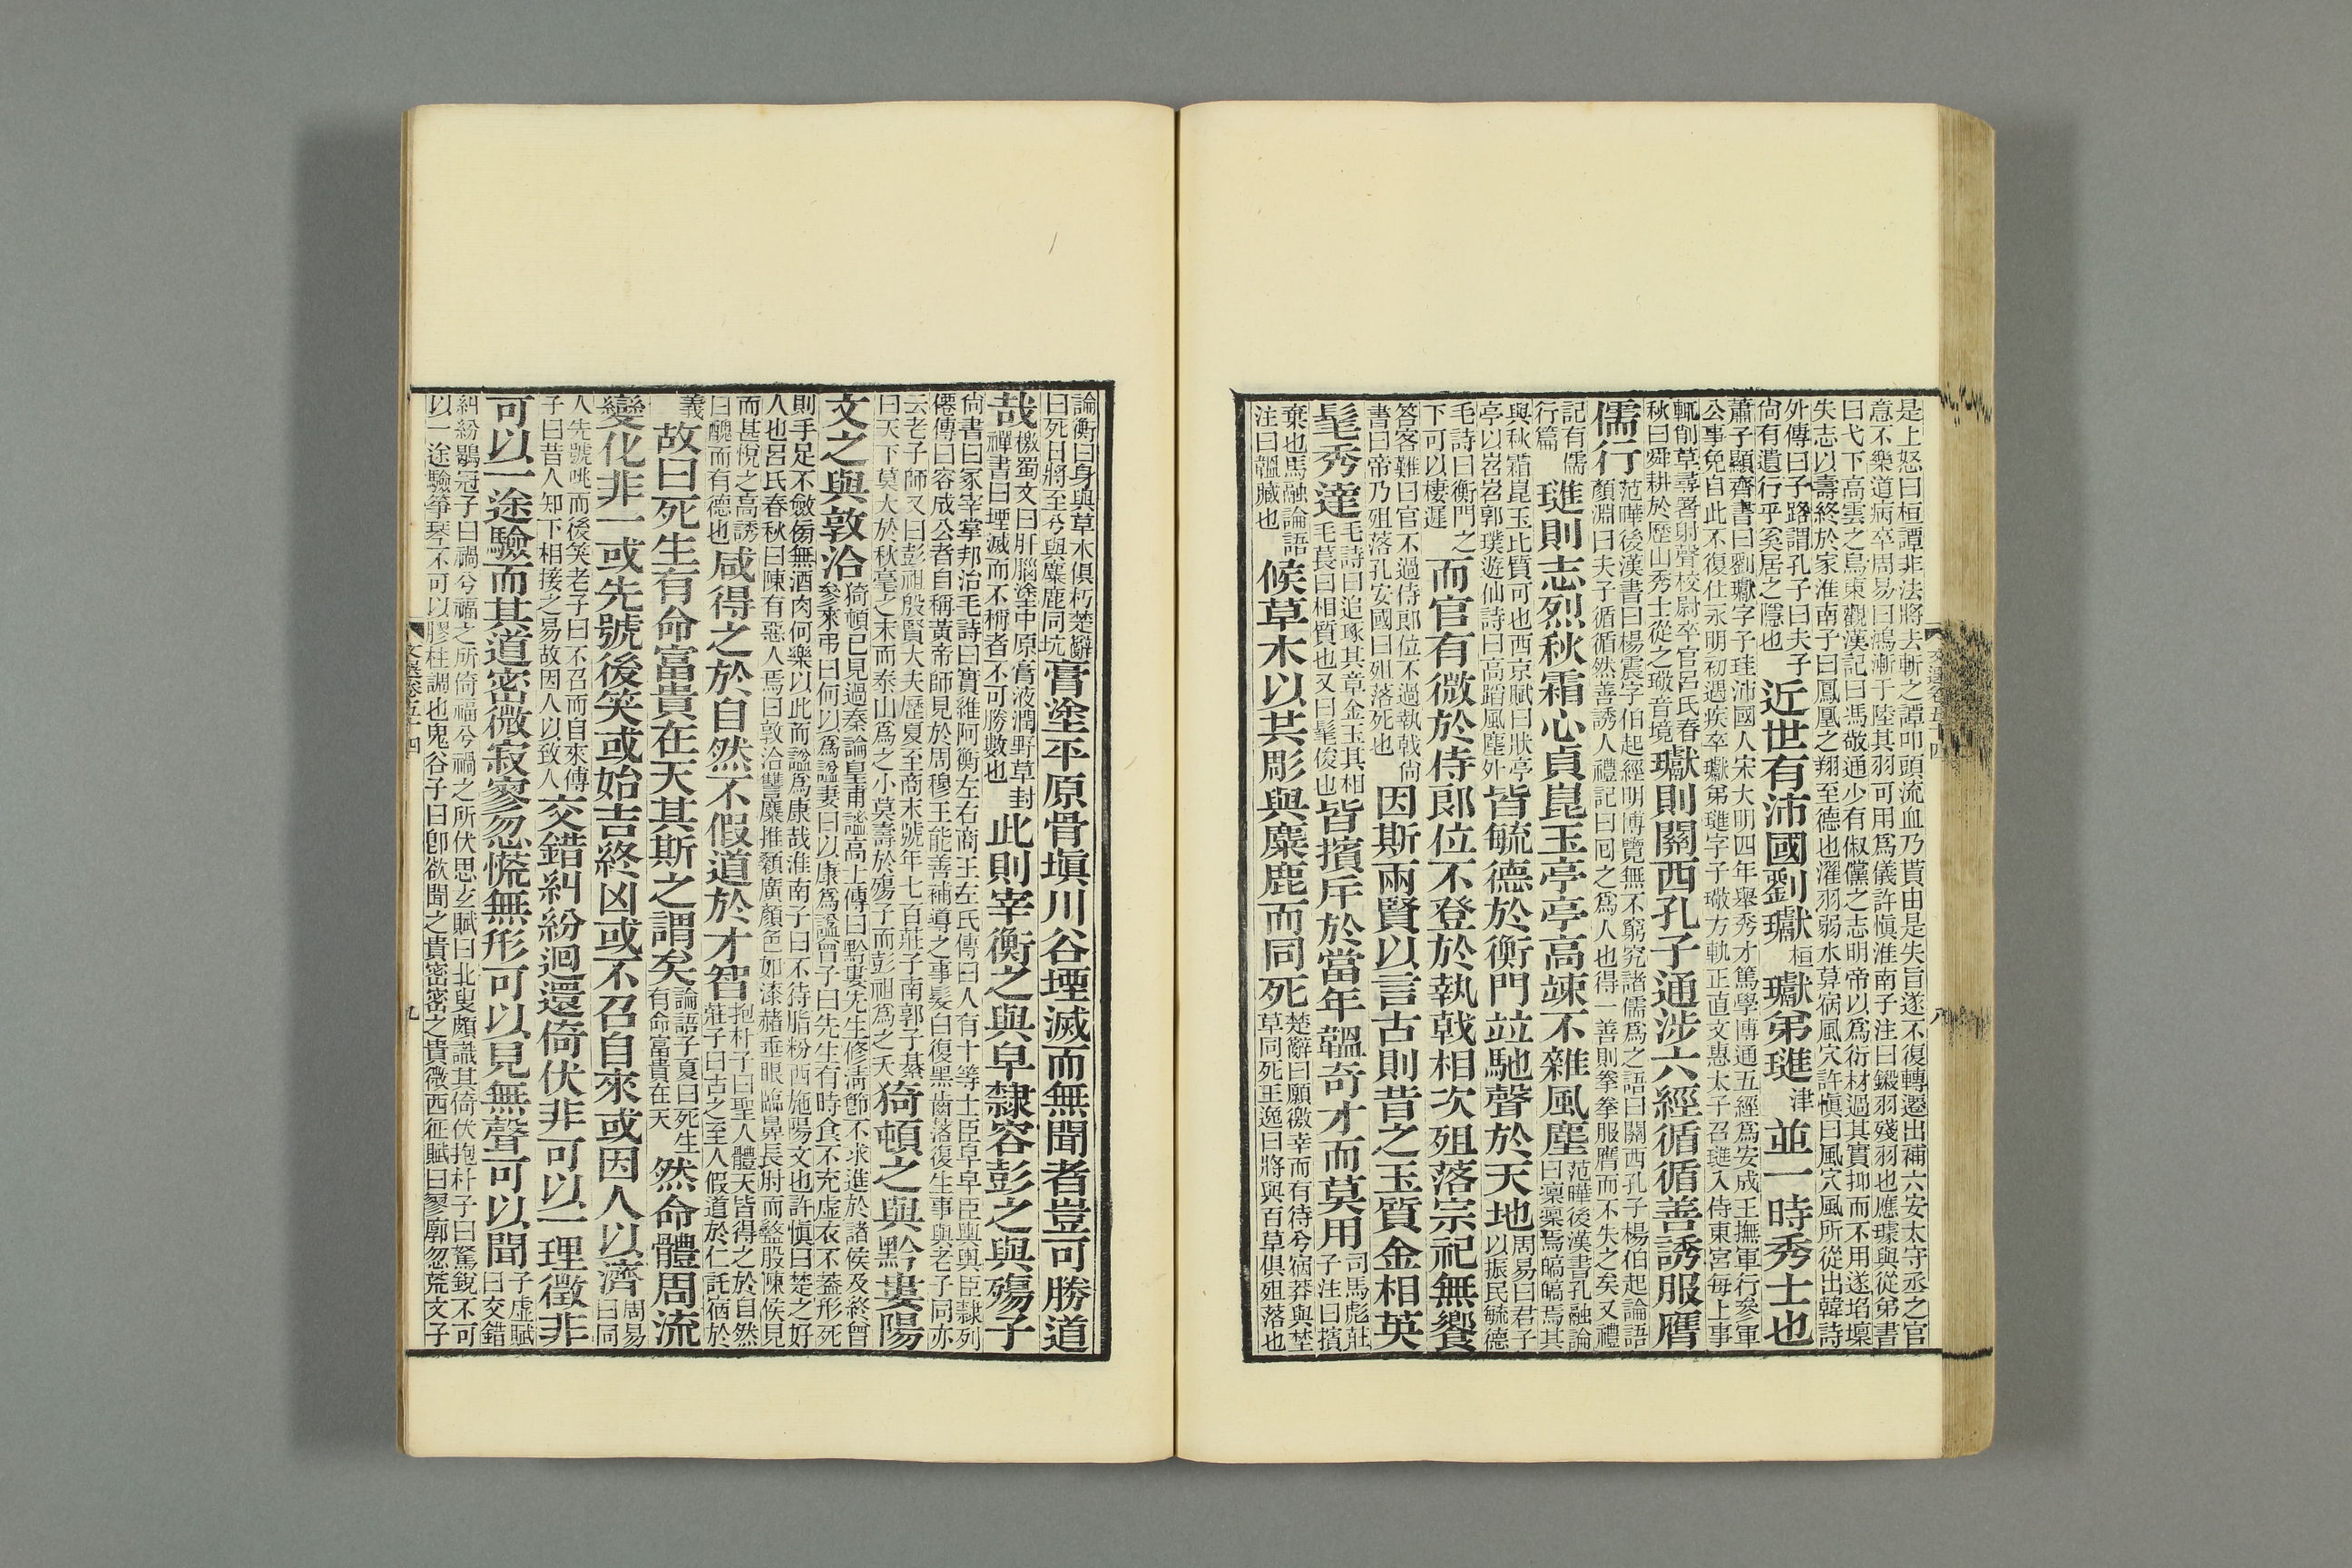 是上怒曰桓譚非法將去斬之譚叩頭流血乃貰由是失旨遂不復轉遷出補六安太守丞之官
意不樂道病卒周易曰鴻漸于陸其羽可用爲儀許愼淮南子注曰鎩羽殘羽也應璩與從弟書
曰弋下高雲之鳥東觀漢記曰馮敬通少有俶儻之志明帝以爲衍材過其實抑而不用遂埳壈
失志以壽終於家淮南子曰鳳凰之翔至德也濯羽弱水草宿風穴許愼曰風穴風所從出韓詩
外傳曰子路謂孔子曰夫子尚有遺行乎奚居之隱也近世有沛國劉瓛桓瓛弟璡津並一時秀士也
蕭子顯齊書曰劉瓛字子珪沛國人宋大明四年舉秀才篤學博通五經爲安成王撫軍行參軍
公事免自此不復仕永明初遇疾卒瓛弟璡字子璥方軌正直文惠太子召璡入侍東宮每上事
輒削草尋署射聲校尉卒官呂氏春秋曰舜耕於歷山秀士從之璥音境瓛則關西孔子通涉六經循循善誘服膺
儒行范曄後漢書曰楊震字伯起經明博覽無不窮究諸儒爲之語曰關西孔子楊伯起論語顏淵曰夫子循循然善誘人禮記曰回之爲人也得一善則拳拳服膺而不失之矣又禮
記有儒行篇璡則志烈秋霜心貞崑玉亭亭高竦不雜風塵范曄後漢書孔融論曰懍懍焉皜皜焉其
與秋霜崑玉比質可也西京賦曰狀亭亭以岧岧郭璞遊仙詩曰高蹈風塵外皆毓德於衡門竝馳聲於天地周易曰君子以振民毓德
毛詩曰衡門之下可以棲遲而官有微於侍郎位不登於執戟相次殂落宗祀無饗
答客難曰官不過侍郎位不過執戟尚書曰帝乃殂落孔安國曰殂落死也因斯兩賢以言古則昔之玉質金相英
髦秀達毛詩曰追琢其章金玉其相毛萇曰相質也又曰髦俊也皆擯斥於當年韞奇才而莫用司馬彪莊子注曰擯
棄也馬融論語注曰韞藏也候草木以共彫與麋鹿而同死楚辭曰願徼幸而有待兮宿莽與埜草同死王逸曰將與百草俱殂落也
文選卷五十四
八
論衡曰身與草木俱朽楚辭曰死日將至兮與麋鹿同坑膏塗平原骨塡川谷堙滅而無聞者豈可勝道
哉檄蜀文曰肝腦塗中原膏液潤野草封禪書曰堙滅而不稱者不可勝數也此則宰衡之與皁隸容彭之與殤子
尙書曰冢宰掌邦治毛詩曰實維阿衡左右商王左氏傳曰人有十等士臣皁皁臣輿輿臣隸列
僊傳曰容成公者自稱黃帝師見於周穆王能善補導之事髮白復黑齒落復生事與老子同亦
云老子師又曰彭祖殷賢大夫歷夏至商末號年七百莊子南郭子綦曰天下莫大於秋毫之末而泰山爲之小莫壽於殤子而彭祖爲之夭猗頓之與黔婁陽
文之與敦洽猗頓已見過秦論皇甫謐高士傳曰黔婁先生修淸節不求進於諸侯及終曾參來弔曰何以爲謚妻曰以康爲謚曾子曰先生有時食不充虛衣不蓋形死
則手足不斂傍無酒肉何樂以此而謚爲康哉淮南子曰不待脂粉西施陽文也許愼曰楚之好
人也呂氏春秋曰陳有惡人焉曰敦洽讐麋推顙廣顏色如漆赭垂眼臨鼻長肘而盭股陳侯見
而甚悅之高誘曰醜而有德也咸得之於自然不假道於才智抱朴子曰聖人體天皆得之於自然莊子曰古之至人假道於仁託宿於
義故曰死生有命富貴在天其斯之謂矣論語子夏曰死生有命富貴在天然命體周流
變化非一或先號後笑或始吉終凶或不召自來或因人以濟周易曰同
人先號咷而後笑老子曰不召而自來傅子曰昔人知下相接之易故因人以致人交錯糾紛迴還倚伏非可以一理徵非
可以一途驗而其道密微寂寥忽慌無形可以見無聲可以聞子虛賦曰交錯
糾紛鶡冠子曰禍兮福之所倚福兮禍之所伏思玄賦曰北叟頗識其倚伏抱朴子曰駑銳不可
以一途驗箏琴不可以膠柱調也鬼谷子曰卽欲聞之貴密密之貴微西征賦曰寥廓忽荒文子
文選卷五十四
九